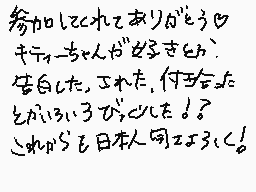 参加してくれてありがとう♡
キティーちゃんが好きとか、
告白した、された、付き合った
とかいろいろびっくりした!?
これからも日本人同士よろしく!